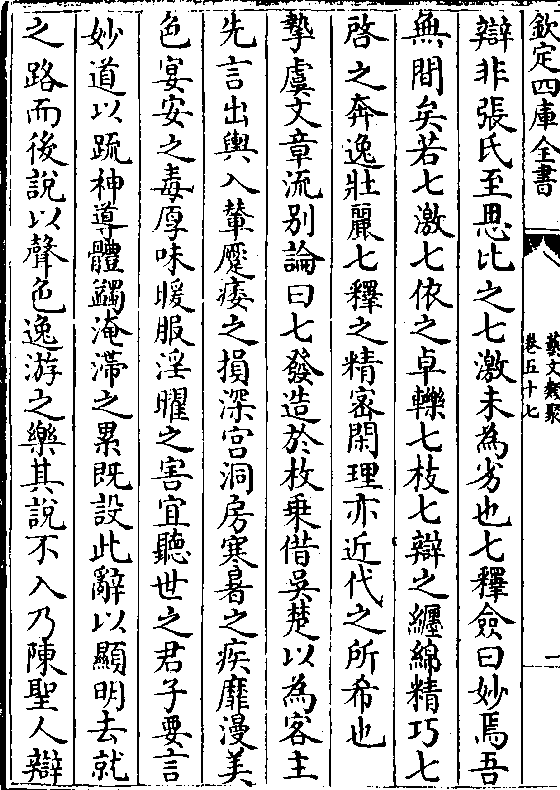 欽定四庫全書
藝文類聚
卷五十七
一
辯非張氏至思比之七激未為劣也七釋僉曰妙焉吾
無間矣若七激七依之卓轢七枝七辯之纏綿精巧七
啓之奔逸壯麗七釋之精密閑理亦近代之所希也
摯虞文章流別論曰七發造於枚乗借吳楚以為客主
先言出輿入輦蹷痿之損深宫洞房寒暑之疾靡漫美
色宴安之毒厚味暖服淫曜之害宜聽世之君子要言
妙道以疏神導體蠲淹滯之累既設此辭以顯明去就
之路而後說以聲色逸游之樂其說不入乃陳聖人辯